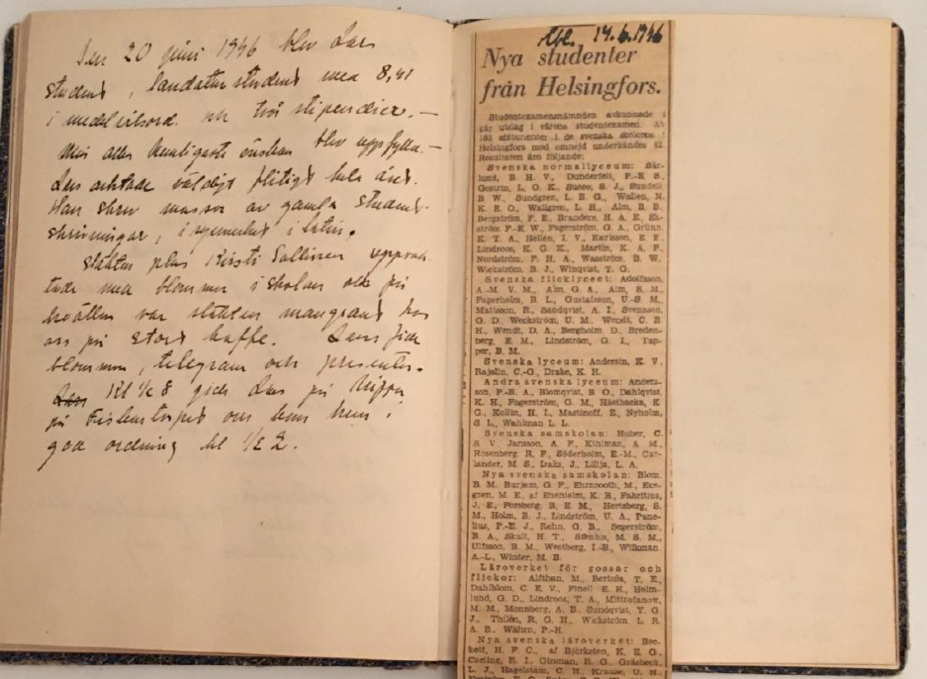 Den 20 juni 1946 blev Lars
student, laudaturstudent med 8,41
i medelvitsord och två stipendier. —
Min allra hemligaste önskan blev uppfylld. —
Lars arbetade väldigt flitigt hela året.
Han skrev massor av gamla student-
skrivningar, i synnerhet i latin.
Släkten plus Kirsti Sallinen uppvak-
tade med blommor i skolan och på
kvällen var släkten mangrant hos
oss på stort kaffe. Lars fick
blommor, telegram och presenter.
Kl ½ 8 gick Lars på
på Fiskartorpet och kom hem i
god ordning kl ½ 2.
Hbl. 14.6.1946
Nya studenter
från Helsingfors.
Studentexamensnämnden avkunnade i
går utslag i vårens studentexamen. Av
193 abiturienter i de svenska skolorna i
Helsingfors med omnejd underkändes 12.
Resultaten äro följande:
Svenska normallyceum: Bär-
lund, B. H. V., Dunderfelt, P.-E. S.,
Gestrin, L. O. K., Succo, S. J., Sundell,
B. W., Sundgren, L. B. G., Wallen, N.
K. E. O., Wallgren, L. H., Alm, B. B.,
Bergström, F. E., Branders, H. A. E., Ek-
ström F.-E. W., Fagerström, G. A., Grünn,
K. T. A., Hellen, I. V., Karlsson, E. E.,
Lindroos, K. G. K., Martin, K. A. P.,
Nordström, F. H. A., Wasström, B. W.,
Wickström, B. J., Winqvist, T. G.
Svenska flicklyceet: Adolfsson,
A.-M. V. M., Alm, G. A., Alm, S. M.,
Fagerholm, B. L., Gustafsson, U.-S. M.,
Mattsson, R., Sandqvist, A. I., Svensson,
G. D., Weckström, U. M., Wendt, C. B.
H., Wendt, D. A., Bergholm, D., Breden-
berg, E. M., Lindström, G. I., Tap-
per, B. M.
Svenska lyceum: Andersin, K. V.,
Rajalin, C.-G., Drake, K. H.
Andra svenska lyceum: Anders-
son, P.-S. A., Blomqvist, B. O., Dahlqvist,
K. H., Fagerström, G. M., Hästbacka, K.
G., Kollin, H. I., Martinoff, E., Nyholm,
S. L., Wahlman L. L.
Svenska samskolan: Huber, C.
S. V., Jansson, A. F., Kihlman, A. M.,
Rosenberg, R. F., Söderholm, E.-M., Car-
lander, M. S., Izaks, J., Lillja, L. A.
Nya svenska samskolan: Blom,
B. M., Burjam, G. F., Ehrnrooth, M., Exe-
gren, M. E., af Enehjelm, K. B., Fabritius,
J. E., Forsberg, B. E. M., Hertzberg, S.
M., Holm, B. J., Lindström, U. A., Pane-
lius, P.-E. J., Rehn, G. B., Segerström,
B. A., Skult, H. T., Stenius, M. S. M.,
Ulfsson, B. M., Westberg, I.-B., Wilkman
A.-L., Winter, M. B.
Läroverket för gossar och
flickor: Alfthan, M., Bertula, T. E.,
Dahlblom, C. E. V., Finell E. H., Holm-
lund, G. D., Lindroos, T. A., Mittrofanow,
M. M., Monnberg, A. B., Sundqvist, T. G.
J., Thilén, R. G. H., Wickström, L. R.
A. B., Wåhrn, P.-H.
Nya svenska läroverket:
H. F. C., af Björksten, K. E. G.,
Carling, E. I., Ginman, E. G., Gräsbeck,
L. J., Hagelstam, C. H., Krause, U. H.,